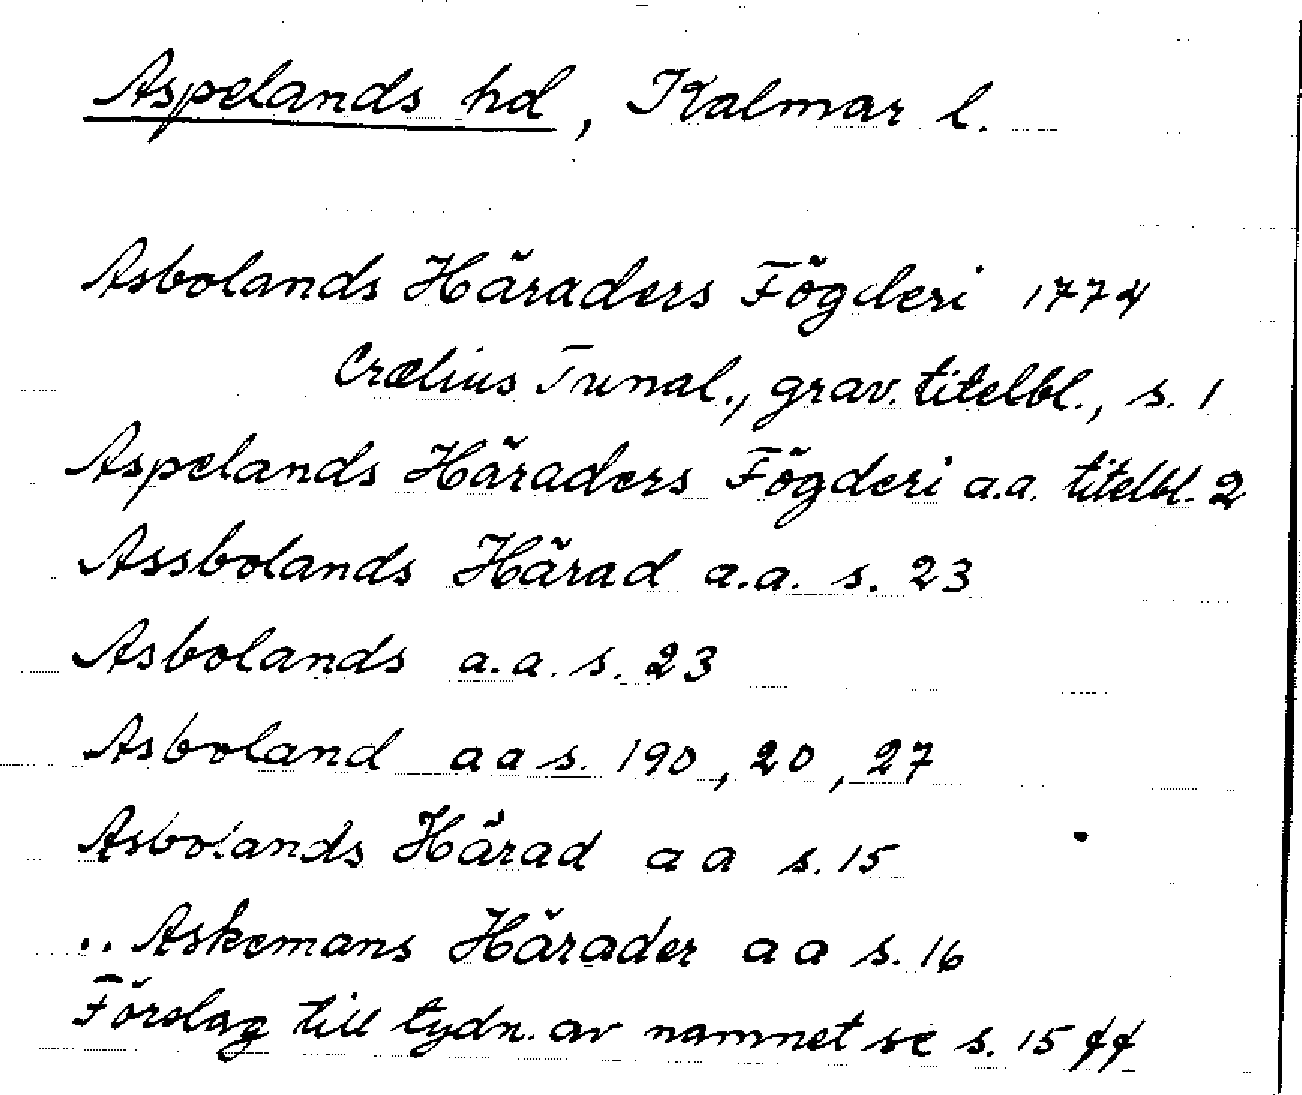 Aspelands hd, Kalmar l.
Asbolands Häraders Fögderi 1774
Crælius Tunal., grav. titelbl., s. 1
Aspelands Häraders Fögderi a.a. titelbl. 2
Assbolands Härad a.a. s. 23
Asbolands a.a. s. 23
Asboland a a s. 190, 20, 27
Asbolands Härad a a s. 15
.. Askemans Härader a a s. 16
Förslag till tydn. av namnet se s. 15 ff